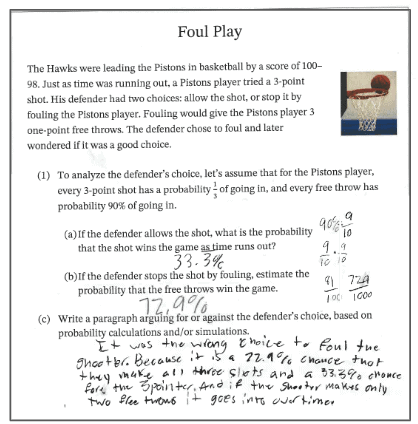 Foul Play
The Hawks were leading the Pistons in basketball by a score of 100–
98. Just as time was running out, a Pistons player tried a 3-point
shot. His defender had two choices: allow the shot, or stop it by
fouling the Pistons player. Fouling would give the Pistons player 3
one-point free throws. The defender chose to foul and later
wondered if it was a good choice.
(1) To analyze the defender's choice, let's assume that for the Pistons player,
every 3-point shot has a probability 1/3 of going in, and every free throw has
probability 90% of going in.
90% 9/10
(a) If the defender allows the shot, what is the probability
that the shot wins the game as time runs out?
9/10 · 9/10
33.3%
(b) If the defender stops the shot by fouling, estimate the
probability that the free throws win the game.
81/100 729/1000
72.9%
(c) Write a paragraph arguing for or against the defender's choice, based on
probability calculations and/or simulations.
It was the wrong choice to foul the
shooter. Because it is a 72.9% chance that
they make all three slots and a 33.3% chance
fore the 3pointer. And if the shooter makes only
two free throws it goes into overtime.